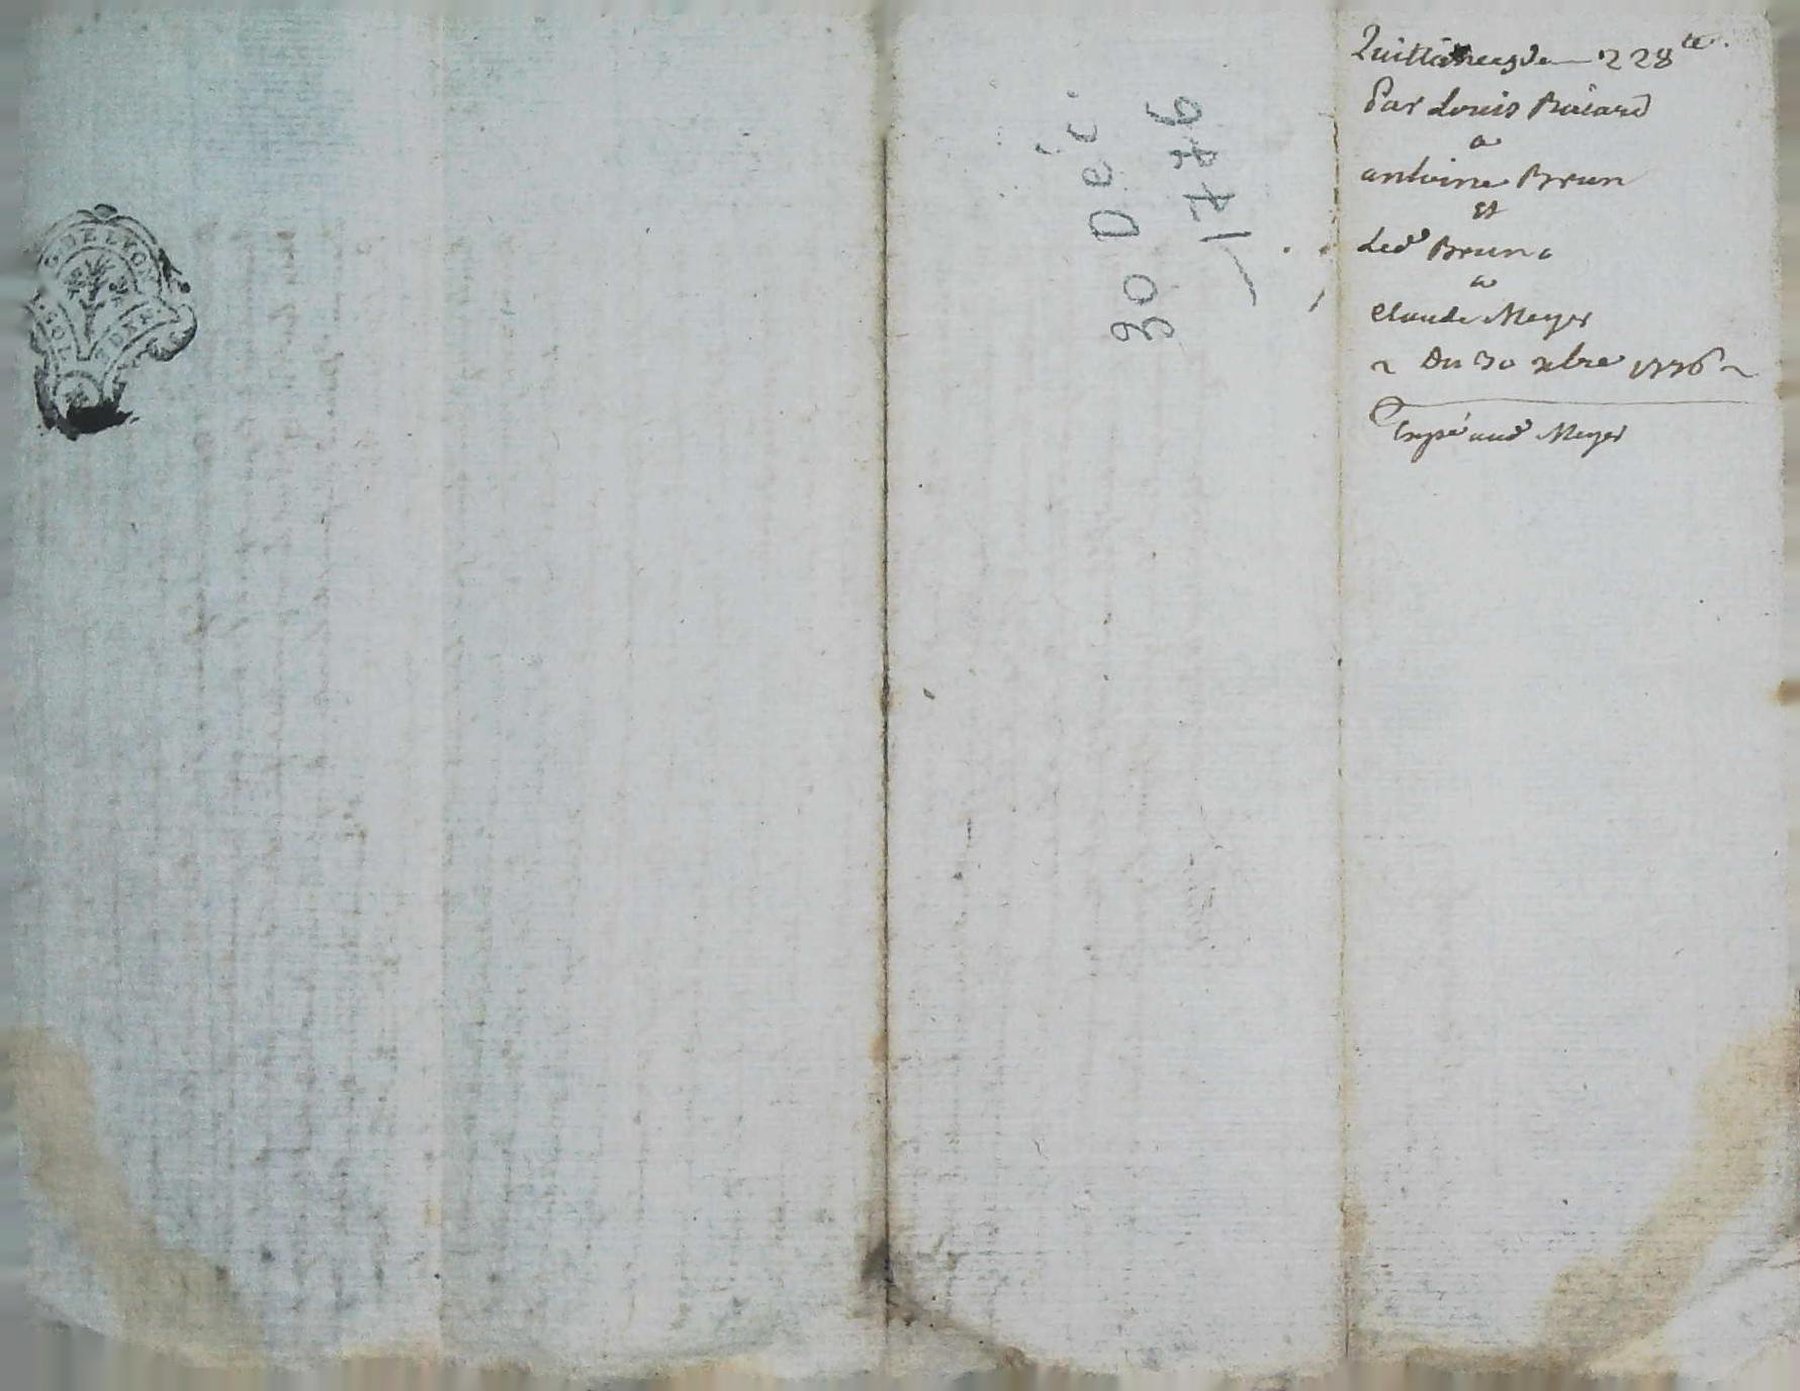 G. DE LYON
SOL
30 Déc.
1776
Quittances de 228 tt.
Par Louis
a
antoine Brun
Et
Led. Brun
a
Claude Meyer
Du 30 xbre 1776
Expé aud. Meyer